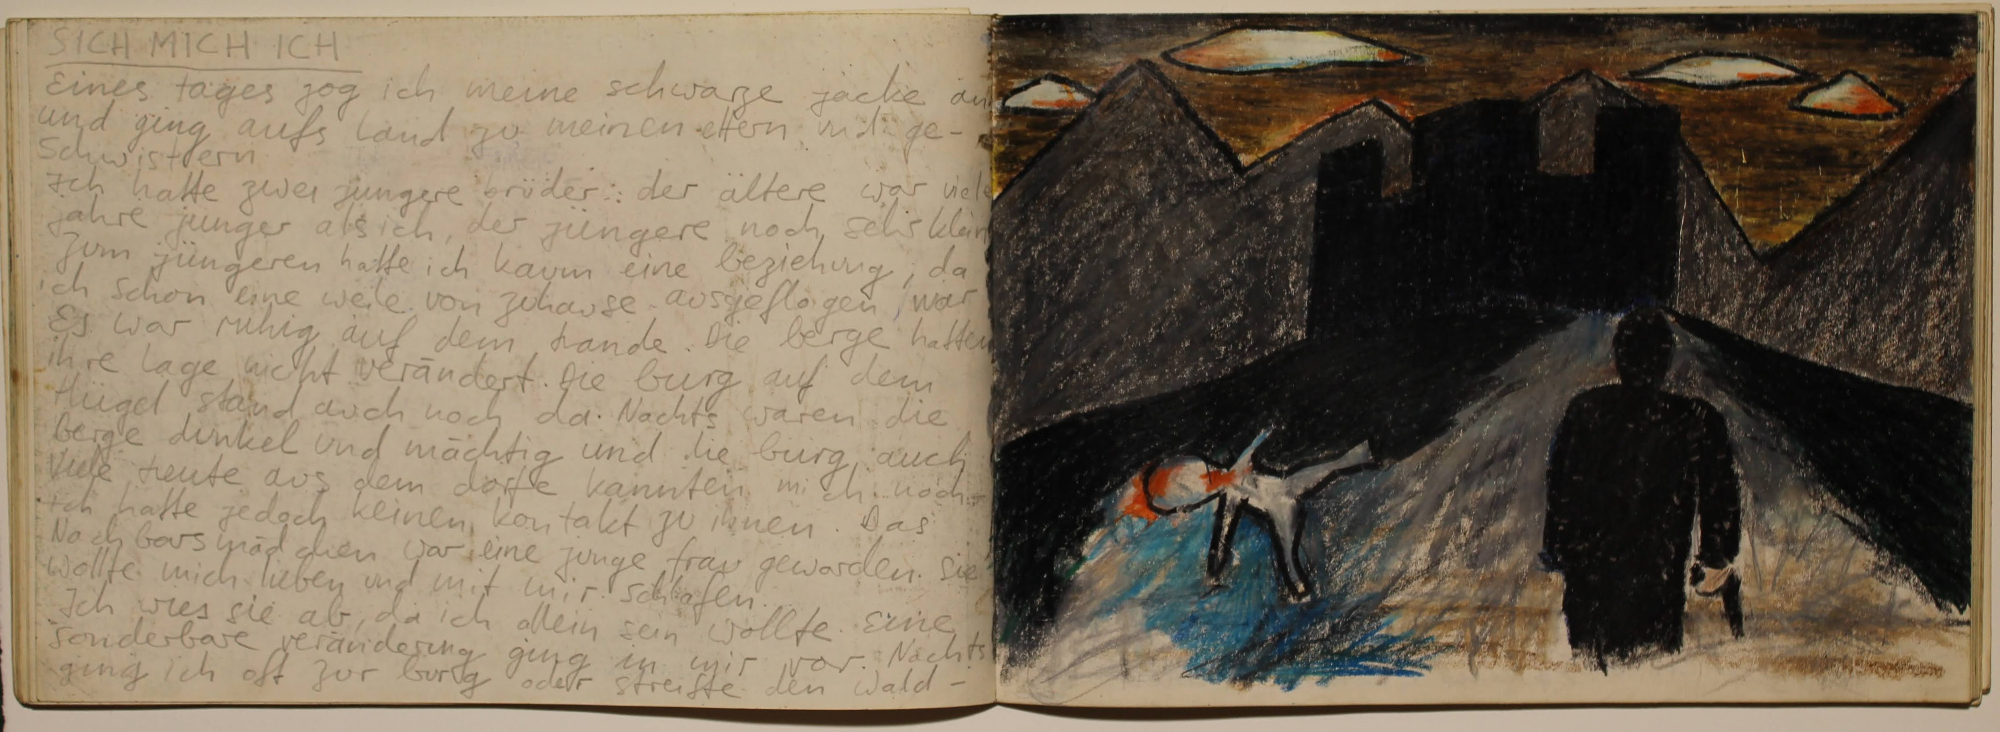 SICH MICH ICH
Eines tages zog ich meine schwarze jacke an
und ging aufs Land zu meinen eltern und ge-
schwistern
Ich hatte zwei jüngere brüder: der ältere war viele
jahre jünger als ich, der jüngere noch sehr klein
zum jüngeren hatte ich kaum eine beziehung, da
ich schon eine weile von zuhause ausgeflogen war
Es war ruhig auf dem Lande. Die berge hatten
ihre Lage nicht verändert. Die burg auf dem
Hügel stand auch noch da. Nachts waren die
berge dunkel und mächtig und die burg auch
Viele Leute aus dem dorfe kannten mich noch-
Ich hatte jedoch keinen kontakt zu ihnen. Das
Nachbarsmädchen war eine junge frau geworden. Sie
wollte mich lieben und mit mir schlafen.
Ich wies sie ab, da ich allein sein wollte. Eine
sonderbare veränderung ging in mir vor. Nachts
ging ich oft zur burg oder streifte den wald-